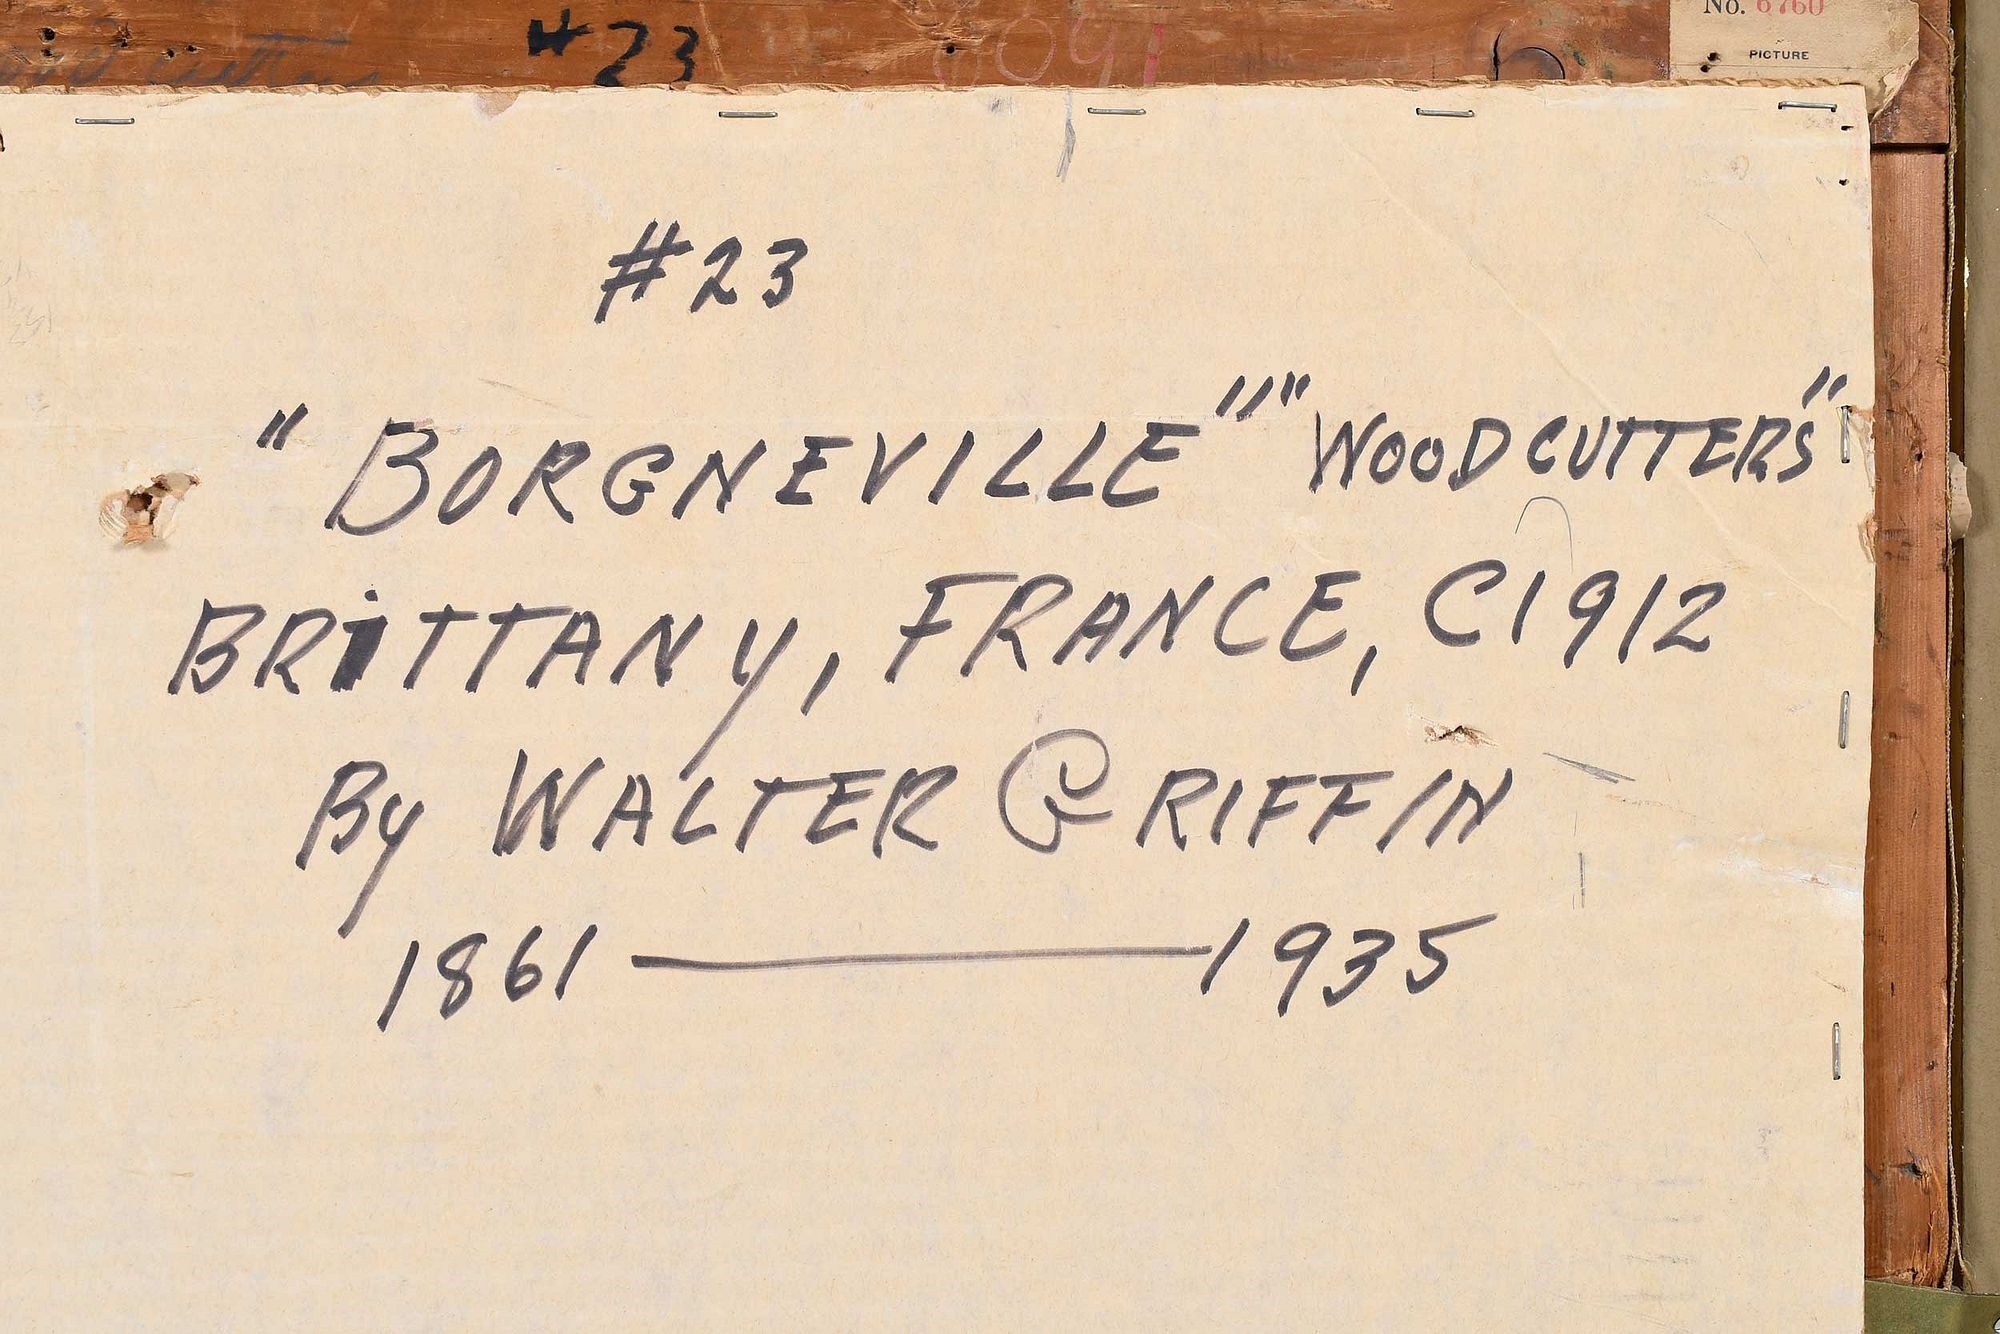 No. 6760
PICTURE
#23
#23
"BORGNEVILLE" "WOODCUTTERS"
BRiTTANY, FRANCE, C1912
By WALTER GRIFFIN
1861 — 1935